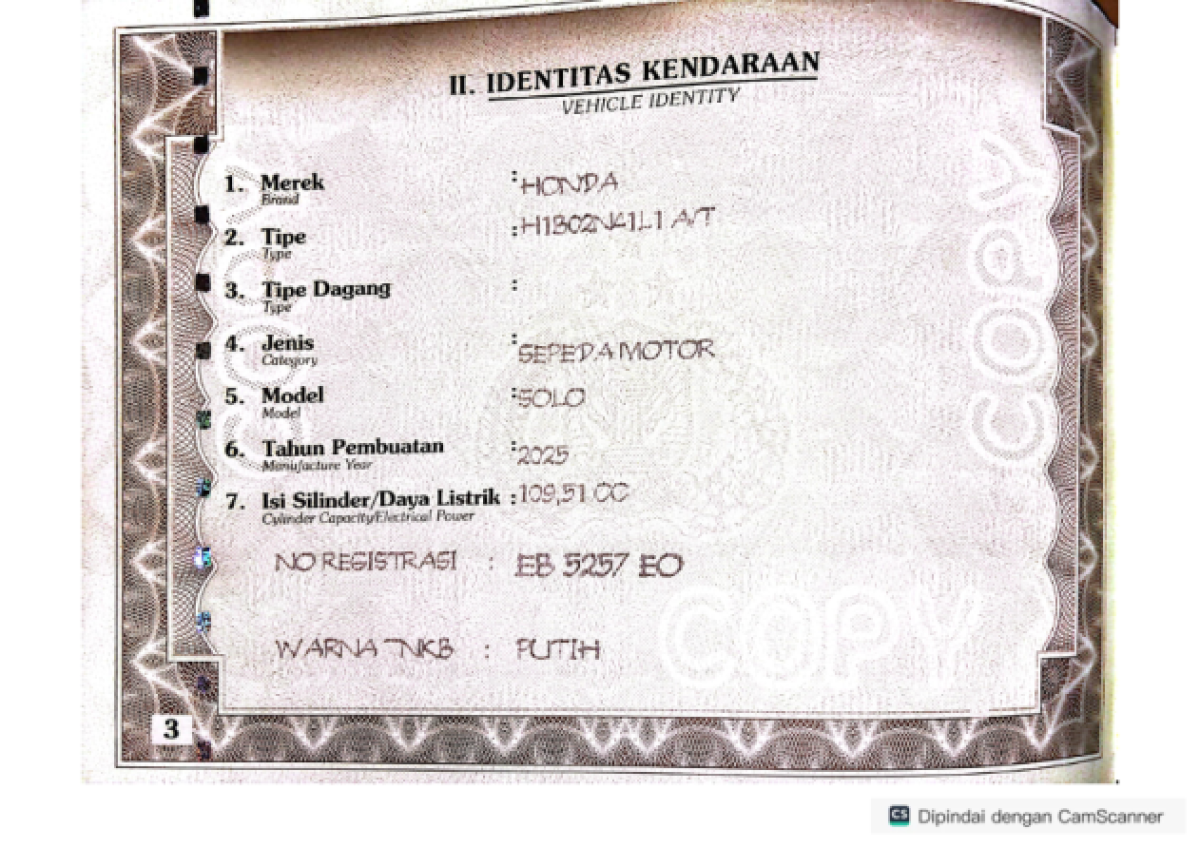 II. IDENTITAS KENDARAAN
VEHICLE IDENTITY
1. Merek : HONDA
Brand
2. Tipe : H1B02N41L1 A/T
Type
3. Tipe Dagang :
Type
4. Jenis : SEPEDA MOTOR
Category
5. Model : SOLO
Model
6. Tahun Pembuatan : 2025
Manufacture Year
7. Isi Silinder/Daya Listrik : 109,51 CC
Cylinder Capacity/Electrical Power
NO REGISTRASI : EB 5257 EO
WARNA TNKB : PUTIH
COPY
COPY
COPY
3
CS Dipindai dengan CamScanner